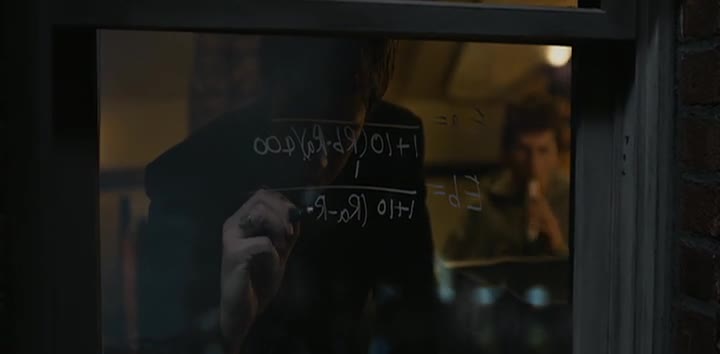 Ea =
1+10 (Rb-Ra)/400
1
Eb =
1+10 (Ra-R